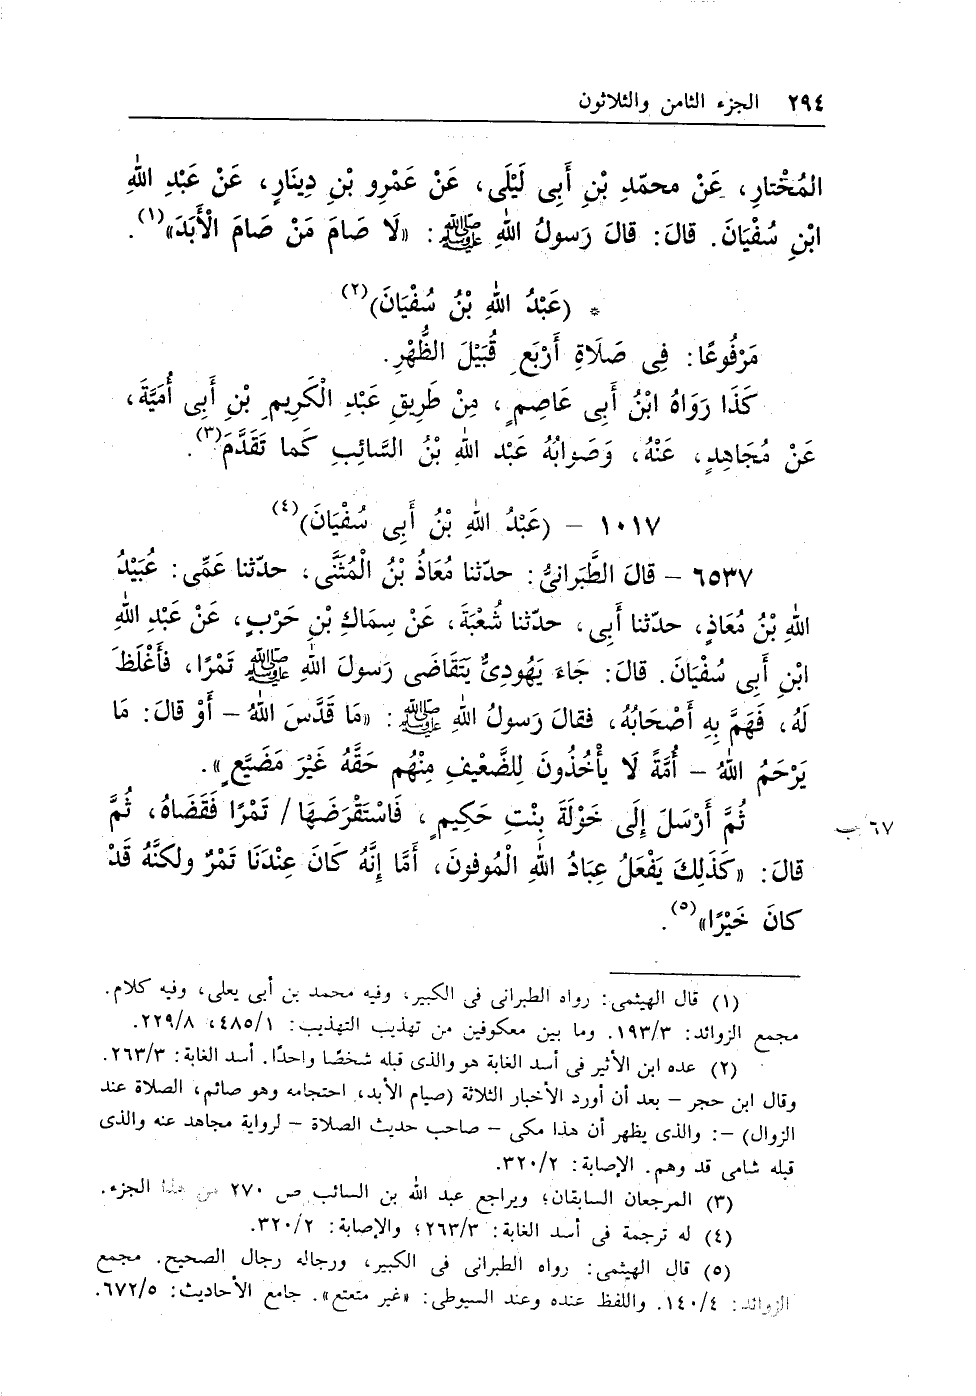 ٢٩٤ الجزء الثامن والثلاثون
المُخْتارِ، عَنْ محمّدِ بْنِ أَبِى لَيْلَى، عَنْ عَمْرِو بْنِ دِينَارٍ، عَنْ عَبْدِ اللهِ
ابْنِ سُفْيَانَ. قالَ: قالَ رَسولُ اللهِ ﷺ: «لَا صَامَ مَنْ صَامَ الْأَبَدَ»(١).
* (عَبْدُ اللهِ بْنُ سُفْيَانَ)(٢)
مَرْفُوعًا: فِى صَلَاةِ أَرْبَعٍ قُبَيْلَ الظُّهْرِ.
كَذَا رَوَاهُ ابْنُ أَبِى عَاصِمٍ، مِنْ طَرِيقِ عَبْدِ الْكَرِيمِ بْنِ أَبِى أُمَيَّةَ،
عَنْ مُجَاهِدٍ، عَنْهُ، وَصَوابُهُ عَبْدُ اللهِ بْنُ السَّائِبِ كَما تَقَدَّمَ(٣).
١٠١٧ – (عَبْدُ اللهِ بْنُ أَبِى سُفْيَانَ)(٤)
٦٥٣٧ – قالَ الطَّبَرانىُّ: حدّثنا مُعَاذُ بْنُ الْمُثَنَّى، حدّثنا عَمِّى: عُبَيْدُ
اللهِ بْنُ مُعَاذٍ، حدّثنا أَبِى، حدّثنا شُعْبَةَ، عَنْ سِمَاكِ بْنِ حَرْبٍ، عَنْ عَبْدِ اللهِ
ابْنِ أَبِى سُفْيَانَ. قالَ: جَاءَ يَهُودِىٌّ يَتَقَاضَى رَسولَ اللهِ ﷺ تَمْرًا، فَأَغْلَظَ
لَهُ، فَهَمَّ بِهِ أَصْحَابُهُ، فقالَ رَسولُ اللهِ ﷺ: «مَا قَدَّسَ اللهُ – أَوْ قالَ: مَا
يَرْحَمُ اللهُ – أُمَّةً لَا يأْخُذُونَ لِلضَّعِيفِ مِنْهُم حَقَّهُ غَيْرَ مَضَيَّعٍ».
ثُمَّ أَرْسَلَ إِلَى خَوْلَةَ بِنْتِ حَكِيمٍ، فَاسْتَقْرَضَهَا/ تَمْرًا فَقَضَاهُ، ثُمَّ ٦٧/ب
قالَ: «كَذَلِكَ يَفْعَلُ عِبَادُ اللهِ الْمُوفونَ، أَمَّا إِنَّهُ كَانَ عِنْدَنَا تَمْرٌ ولكنَّهُ قَدْ
كانَ خَيْرًا»(٥).
(١) قال الهيثمى: رواه الطبرانى فى الكبير، وفيه محمد بن أبى يعلى، وفيه كلام.
مجمع الزوائد: ١٩٣/٣. وما بين معكوفين من تهذيب التهذيب: ٤٨٥/١، ٢٢٩/٨.
(٢) عده ابن الأثير فى أسد الغابة هو والذى قبله شخصًا واحدًا. أسد الغابة: ٢٦٣/٣.
وقال ابن حجر – بعد أن أورد الأخبار الثلاثة (صيام الأبد، احتجامه وهو صائم، الصلاة عند
الزوال) –: والذى يظهر أن هذا مكى – صاحب حديث الصلاة – لرواية مجاهد عنه والذى
قبله شامى قد وهم. الإصابة: ٣٢٠/٢.
(٣) المرجعان السابقان؛ ويراجع عبد الله بن السائب ص ٢٧٠ من هذا الجزء.
(٤) له ترجمة فى أسد الغابة: ٢٦٣/٣؛ والإصابة: ٣٢٠/٢.
(٥) قال الهيثمى: رواه الطبرانى فى الكبير، ورجاله رجال الصحيح. مجمع
الزوائد: ١٤٠/٤. واللفظ عنده وعند السيوطى: «غير متعتع». جامع الأحاديث: ٦٧٢/٥.